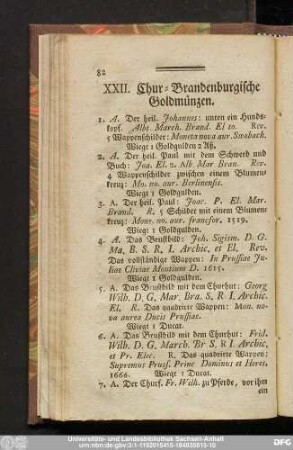 82
XXII. Chur-Brandenburgische
Goldmünzen.
1. A. Der heil. Johannes: unten ein Hunds-
kopf. Albt. March. Brand. El 10. Rev.
5 Wappenschilder: Moneta nova aur. Swobach.
Wiegt 1 Goldgulden 2 Aß.
2. A. Der heil. Paul mit dem Schwerd und
Buch: Joa. El. 2. Alb Mar Bran. Rev.
4 Wappenschilder zwischen einem Blumen
kreuz: Mo. no. aur. Berlinensis.
Wiegt 1 Goldgulden.
3. A. Der heil. Paul: Joac. P. El. Mar.
Brand. R. 5 Schilder mit einem Blumen
kreuz: Mone. no. aur. francfor. 1519.
Wiegt 1 Goldgulden.
4. A. Das Brustbild: Joh. Sigism. D. G.
Ma. B. S. R. I. Archic. et El. Rev.
Das vollständige Wappen: In Prussiae Ju-
liae Cliviae Montium D. 1615.
Wiegt 1 Goldgulden.
5. A. Das Brustbild mit dem Churhut: Georg
Wilh. D. G. Mar. Bra. S. R I. Archic.
El. R. Das quadrirte Wappen: Mon. no-
va aurea Ducis Prussiae.
Wiegt 1 Ducat.
6. A. Das Brustbild mit dem Churhut: Frid.
Wilh. D. G. March. Br S. R I Archic.
et Pr. Elec. R. Das quadrirte Wappen:
Supremus Pruss. Princ Dominus et Heres.
1666. Wiegt 1 Ducat.
7. A. Der Churf. Fr. Wilh. zu Pferde, vor ihm
ein
Universitäts- und Landesbibliothek Sachsen-Anhalt
DFG